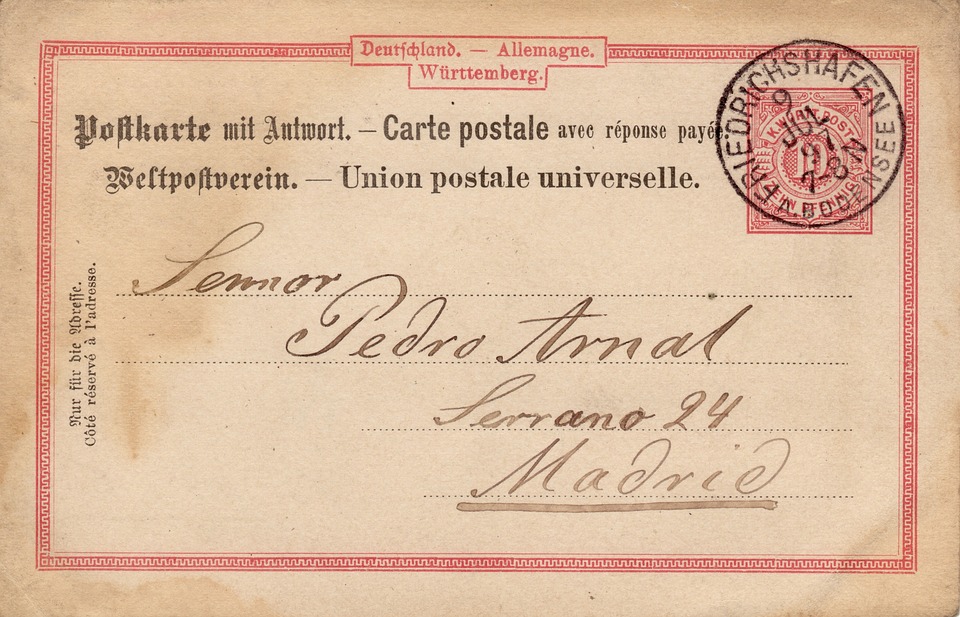 Deutschland. — Allemagne.
Württemberg.
Postkarte mit Antwort. — Carte postale avec réponse payé
Weltpostverein. — Union postale universelle.
FRIEDRICHSHAFEN
A. BODENSEE
9
K. WÜRTT. POST
ZEHN PFENNIG
Nur für die Adresse.
Côté réservé à l'adresse.
Sennor
Pedro Arnal
Serrano 24
Madrid